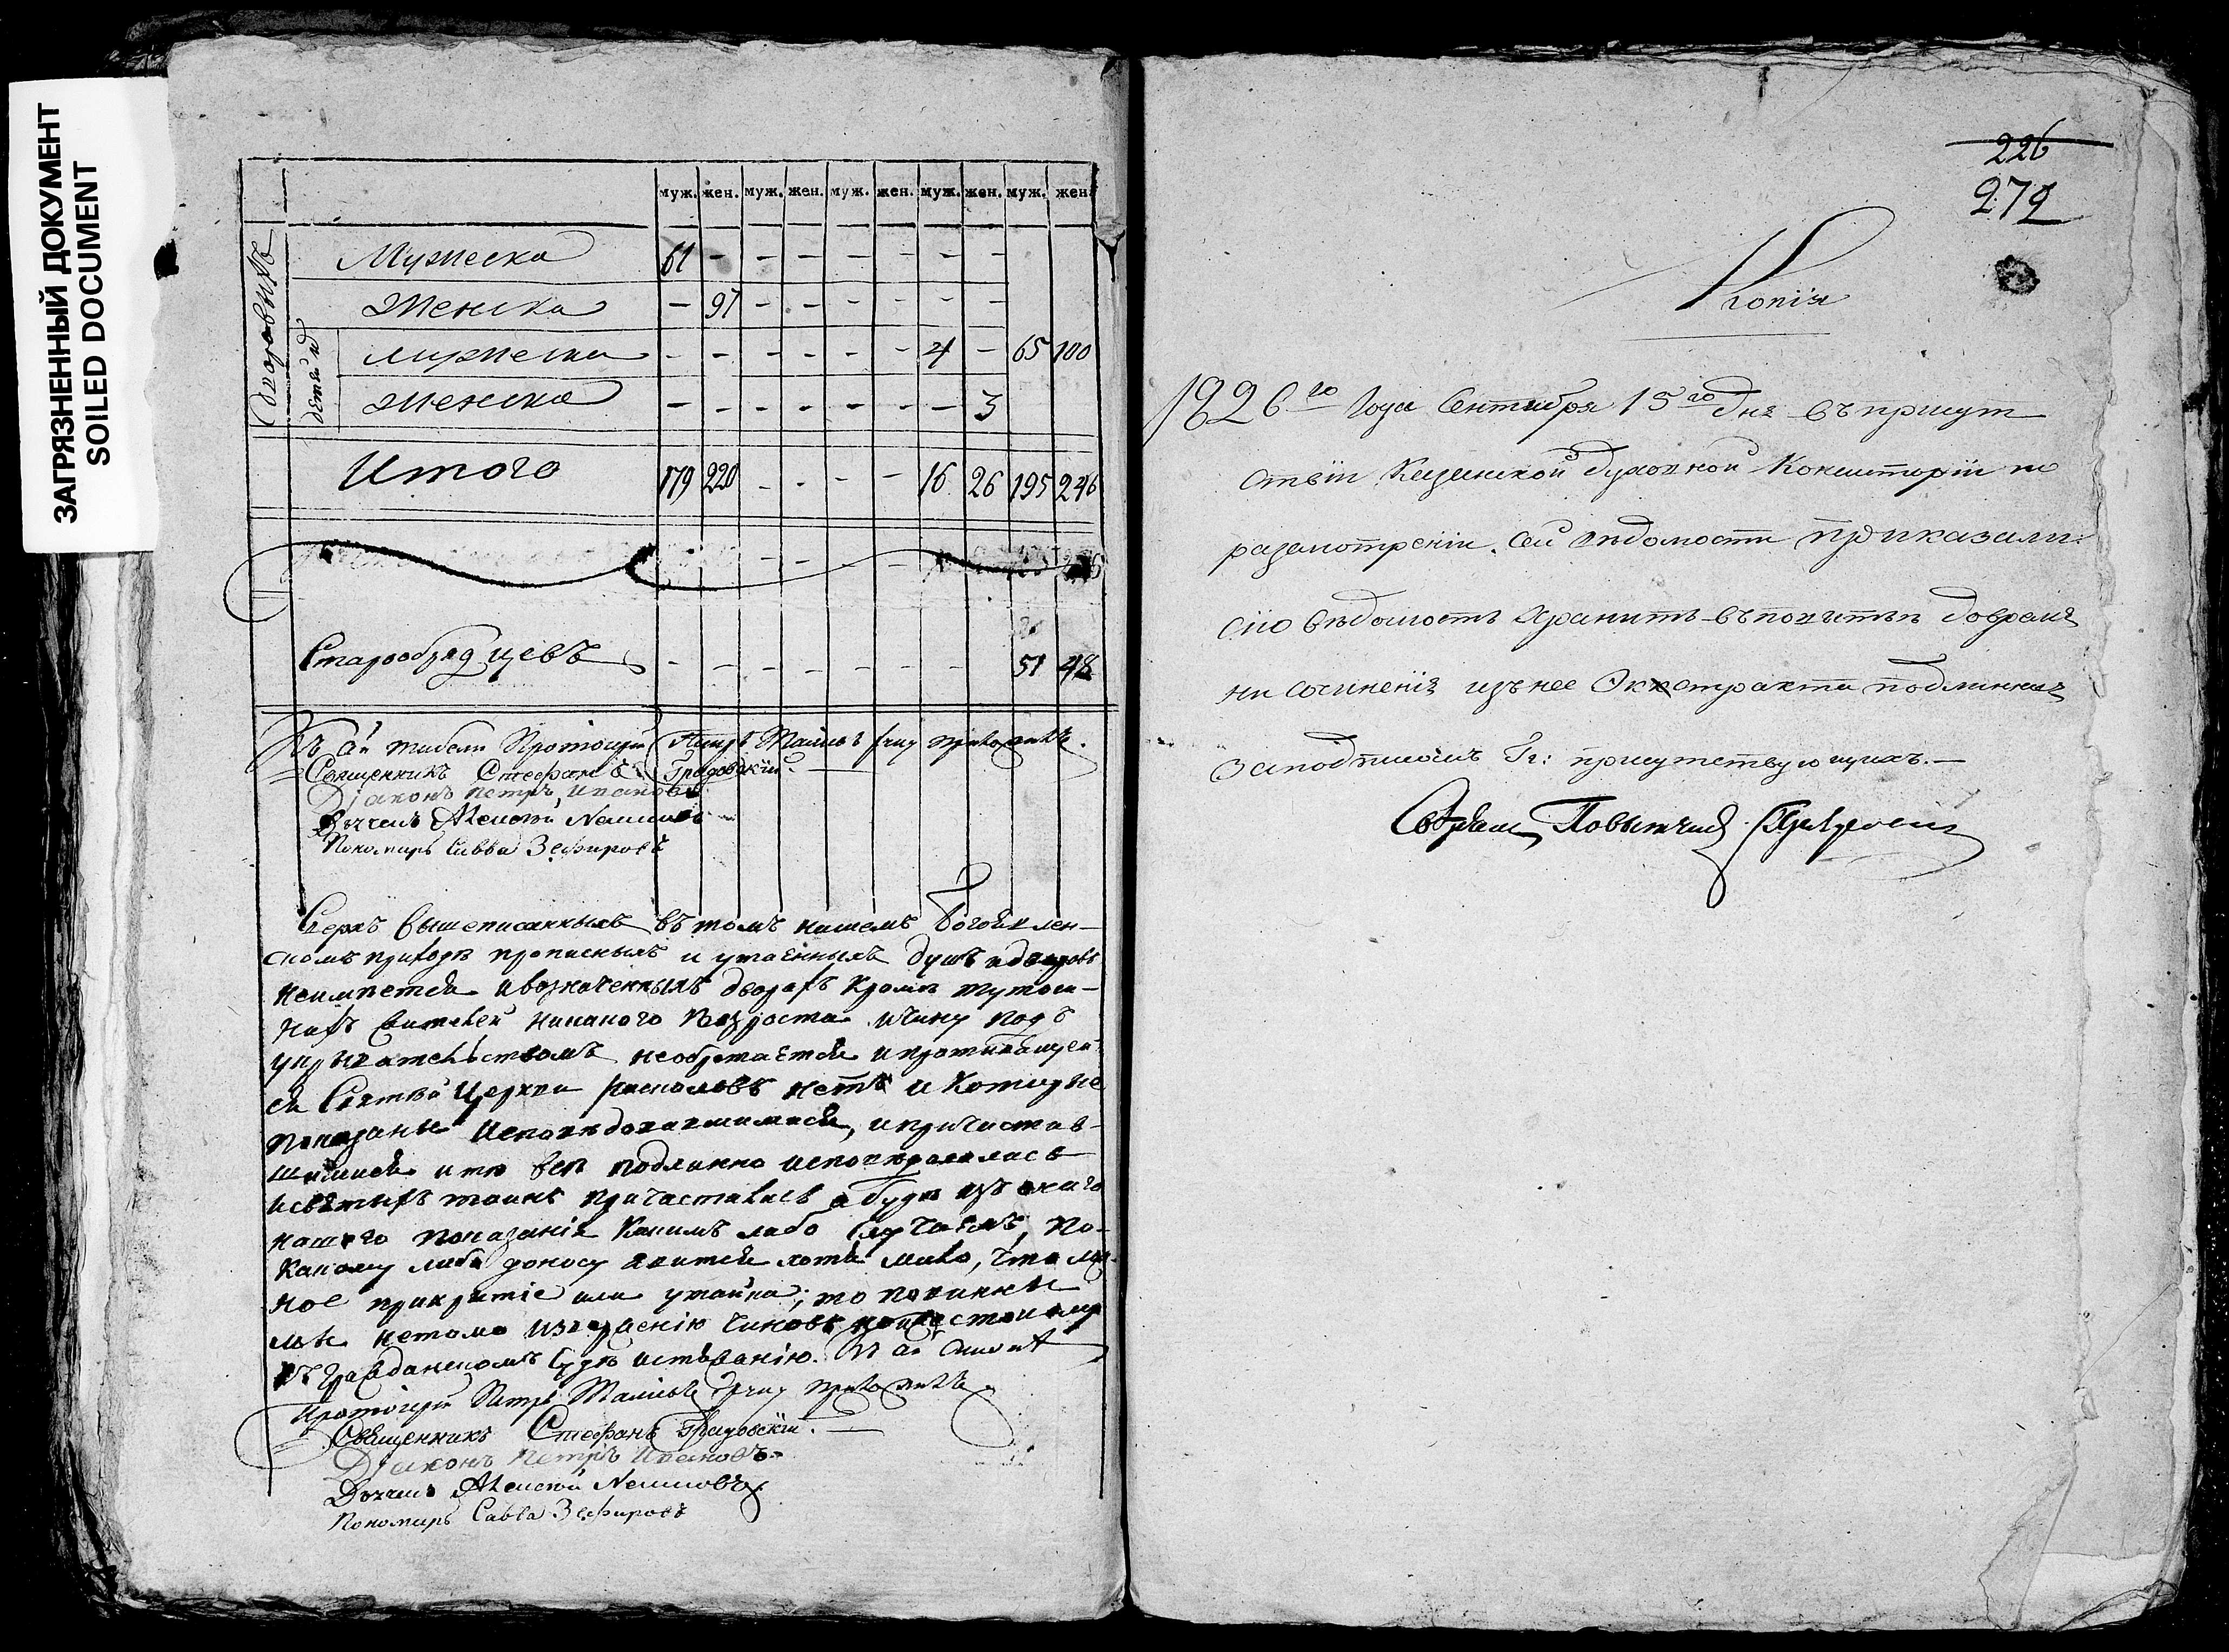 ЗАГРЯЗНЕННЫЙ ДОКУМЕНТ
SOILED DOCUMENT
муж. жен. муж. жен. муж. жен. муж. жен. муж. жен.
Дворовыхъ
Мужеска 61 - - - - - - -
Женска - 97 - - - - - -
детей ихъ
мужеска - - - - - - 4 - 65 100
женска - - - - - - - 3
Итого 179 220 - - - - 16 26 195 246
Старообрядцевъ - - - - - - - 51 48
Къ сей Протоиерей Петръ руку приложилъ.
Священникъ Стефанъ Градовскій.
Діаконъ Петръ Ивановъ
Дьячекъ Алексей
Пономарь Савва Зефировъ
Сверхъ вышеписанныхъ въ томъ нашемъ Богоявлен-
скомъ приходѣ прописныхъ и утаенныхъ душъ и дворовъ
неимѣется и возначенныхъ дворахъ кромѣ тутош-
нихъ жителей никакого возроста и чину подъ
укрывательствомъ необретается и противящей
ся Святой Церкви расколовъ нетъ и которые
показаны исповѣдовавшимися, и причастив-
шимися и тѣ всѣ подлинно исповѣдовались
и святыхъ таинъ причастились а буде изъ онаго
нашего показанія какимъ либо случаемъ, по
какому либо доносу явится хотя мало, что лож-
ное прикрытіе или утайка; то повинны
мы нетомо извержению чиновъ но и жестокому
въ гражданскомъ судѣ истязанію. Къ сей
Протоиерей Петръ руку приложилъ.
Священникъ Стефанъ Градовскій.
Діаконъ Петръ Ивановъ
Дьячекъ Алексей
Пономарь Савва Зефировъ
226
279
Копія
1826го Года Сентября 15го дня въ присут
ствіи Казанской духовной Консисторіи по
разсмотреніи сей вѣдомости приказали:
сію вѣдомость хранить въ повытьѣ до време
ни сочиненія изъ нее Экстракта подлинная
За подписомъ Гг: присутствующихъ.
Повытчикъ